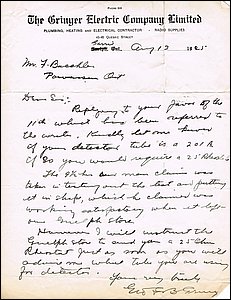 The Grinyer Electric Company Limited
PLUMBING, HEATING AND ELECTRICAL CONTRACTOR - RADIO SUPPLIES
QUEBEC STREET
Ont. Aug 12 1925
Mr. F. Buchler
Powassan Ont
Dear Sir;
Replying to your favor of the
11th which has been referred to
the writer. Kindly let me know
if your detector tube is a 201A
if so you would require a 25
The 9½ hrs our man claims was
taken in testing out the and putting
it in shape, which he claimed was
working satisfactory when it left
our Guelph Store.
However I will instruct the
Guelph store to send you a 25 Ohm
Rheostat just as soon as you will
advise me what tube you are using
for detector.
Yours very truly
Geo